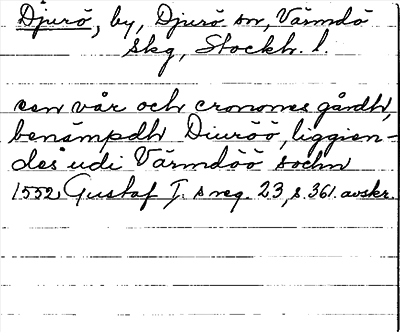 Djurö, by, Djurö sn, Värmdö
skg, Stockh. l.
een vår och cronones gårdh,
benämpdh Diuröö, liggien-
des udi Värmdöö sochn
1552 Gustaf I:s reg. 23, s. 361. avskr.